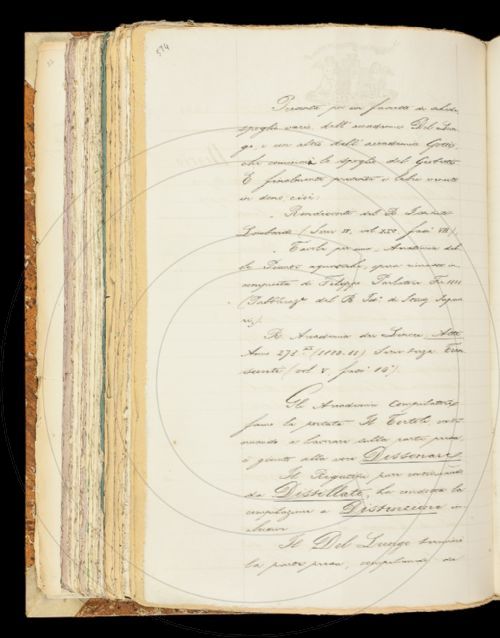 574
Presenta poi un fascetto di schede
spoglio vario dell'accademico Del Lun-
go, e un altro dell'accademico Gotti
che comincia lo spoglio del Giobetti
E finalmente presenta i libri venuti
in dono, cioè:
. Rendiconti del R. Istituto
Lombardo (Serie II, vol. XIV. fasc. VII)
. Tavole per una Anatomia del-
le Piante aquatiche, opera rimasta in-
compiuta di Filippo Parlatore Fir. 1881
(Pubblicaz.e del R. Ist. di Studj Supe-
rio.)
R. Accademia dei Lincei, Atti
Anno 278.mo (1880-81) Serie terza Tran-
sunti (vol. V. fasc. 14°)
Gli Accademici Compilatori
fanno la portata. Il Tortoli conti-
nuando a lavorare sulla parte presa
è giunto alla voce Dissonare
Il Rigutini pure continuando
da Distillato, ha condotta la
compilazione a Distinzione in-
clusive
Il Del Lungo terminò
la parte presa, compilando da